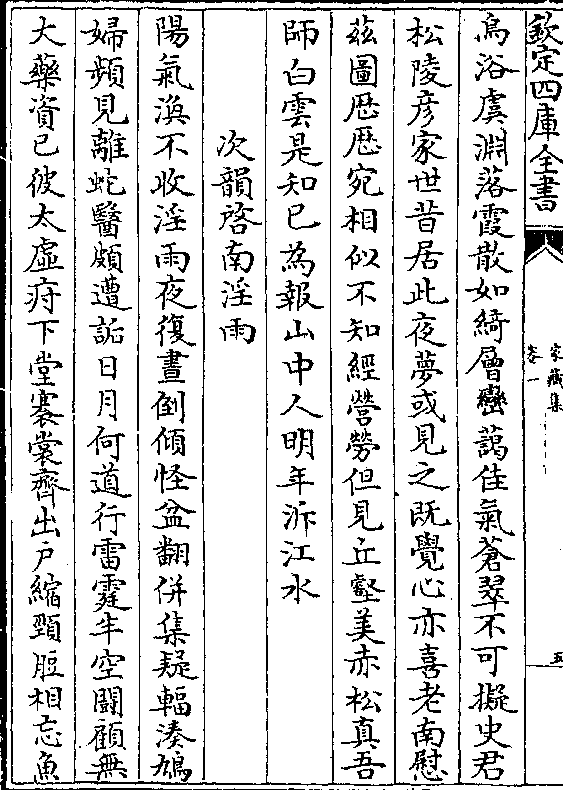 欽定四庫全書
家藏集
卷一
五
烏浴虞淵落霞散如綺層巒藹佳氣蒼翠不可擬史君
松陵彦家世昔居此夜夢或見之既覺心亦喜老南慰
兹圖歴歴宛相似不知經營勞但見丘壑美赤松真吾
師白雲是知已為報山中人明年泝江水
次韻啓南淫雨
陽氣渙不收淫雨夜復晝倒傾怪盆翻併集疑輻湊鳩
婦頻見離蛇醫頗遭詬日月何道行雷霆半空鬭顧無
大藥資已彼太虛疛下堂褰裳齊出戶縮頸脰相忘魚